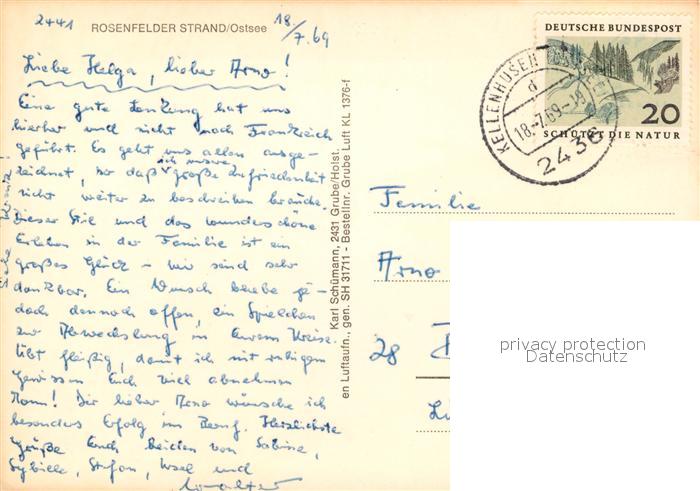 2441
ROSENFELDER STRAND/Ostsee
18/7.69
Liebe Helga, lieber Arno!
Eine gute Lenkung hat uns
hierher und nicht nach Frankreich
geführt. Es geht uns allen ausge-
zeichnet, so daß ich unsere große Zufriedenheit
nicht weiter zu beschreiben brauche.
Dieser Stil und das wunderschöne
Erleben in der Familie ist ein
großes Glück - wir sind sehr
dankbar. Ein Wunsch bleibe je-
doch dennoch offen, ein Spielchen
zur Abwechslung in Eurem Kreise.
Übt fleißig, damit ich mit ruhigem
Gewissen Euch viel abnehmen
kann! Dir lieber Arno wünsche ich
besonders Erfolg im Beruf. Herzlichste
Grüße Euch Beiden von Sabine,
Sybille, Stefan, und
Walter
Siehe
Karl Schümann, 2431 Grube/Holst.
en Luftaufn., gen. SH 31711 - Bestellnr. Grube Luft KL 1376-f
DEUTSCHE BUNDESPOST
20
SCHÜTZT DIE NATUR
KELLENHUSEN
d
18.-7.69
2436
Familie
Arno
28
privacy protection
Datenschutz